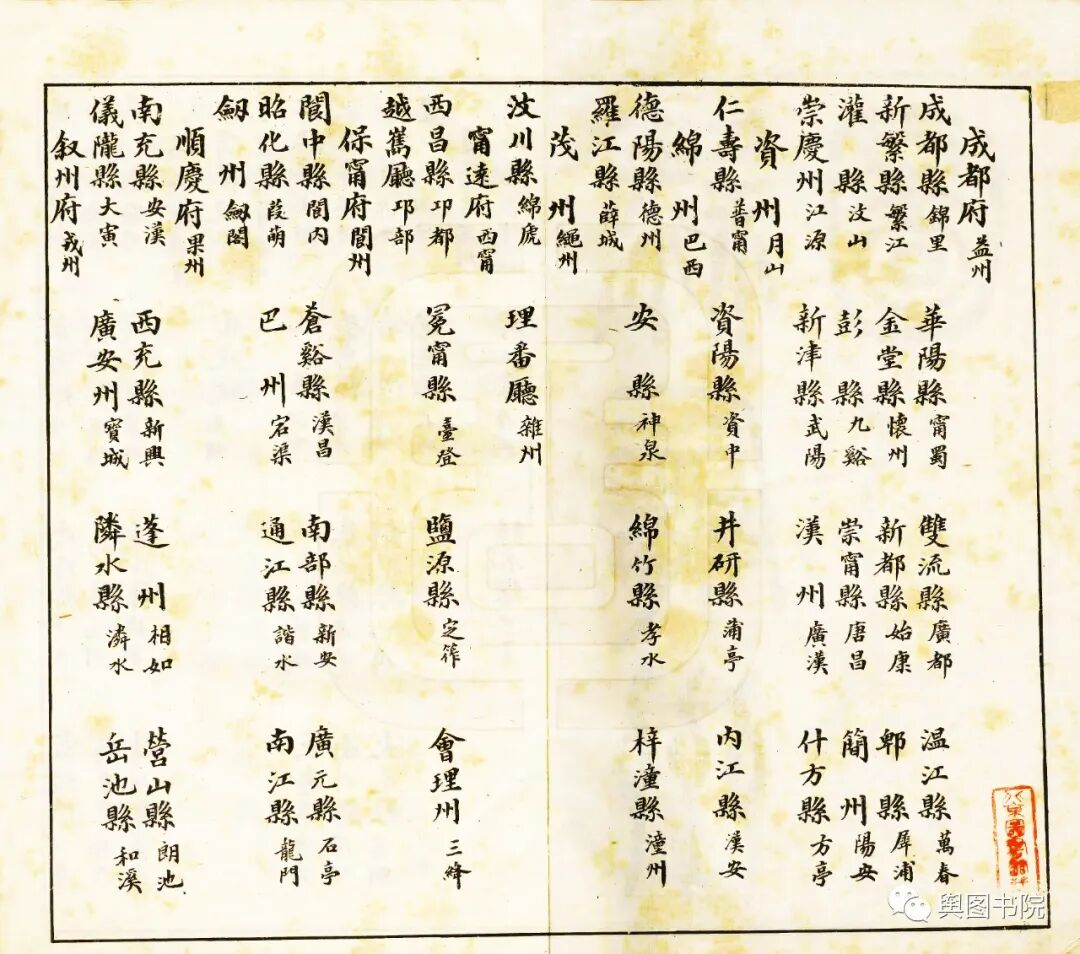 成都府 益州
成都縣 錦里 華陽縣 甯蜀 雙流縣 廣都 温江縣 萬春
新繁縣 繁江 金堂縣 懷州 新都縣 始康 郫縣 犀浦
灌縣 汶山 彭縣 九谿 崇甯縣 唐昌 簡州 陽安
崇慶州 江源 新津縣 武陽 漢州 廣漢 什方縣 方亭
資州 月山
仁壽縣 普甯 資陽縣 資中 井研縣 蒲亭 内江縣 漢安
綿州 巴西
德陽縣 德州 安縣 神泉 綿竹縣 孝水 梓潼縣 潼州
羅江縣 薛城
茂州 繩州
汶川縣 綿虒 理番廳 雜州
甯遠府 西甯
西昌縣 邛都 冕甯縣 臺登 鹽源縣 定筰 會理州 三絳
越嶲廳 邛部
保甯府 閬州
閬中縣 閬内 蒼谿縣 漢昌 南部縣 新安 廣元縣 石亭
昭化縣 葭萌 巴州 宕渠 通江縣 諧水 南江縣 龍門
劍州 劍閣
順慶府 果州
南充縣 安漢 西充縣 新興 蓬州 相如 營山縣 朗池
儀隴縣 大寅 廣安州 賨城 隣水縣 潾水 岳池縣 和溪
叙州府 戎州
舆图书院